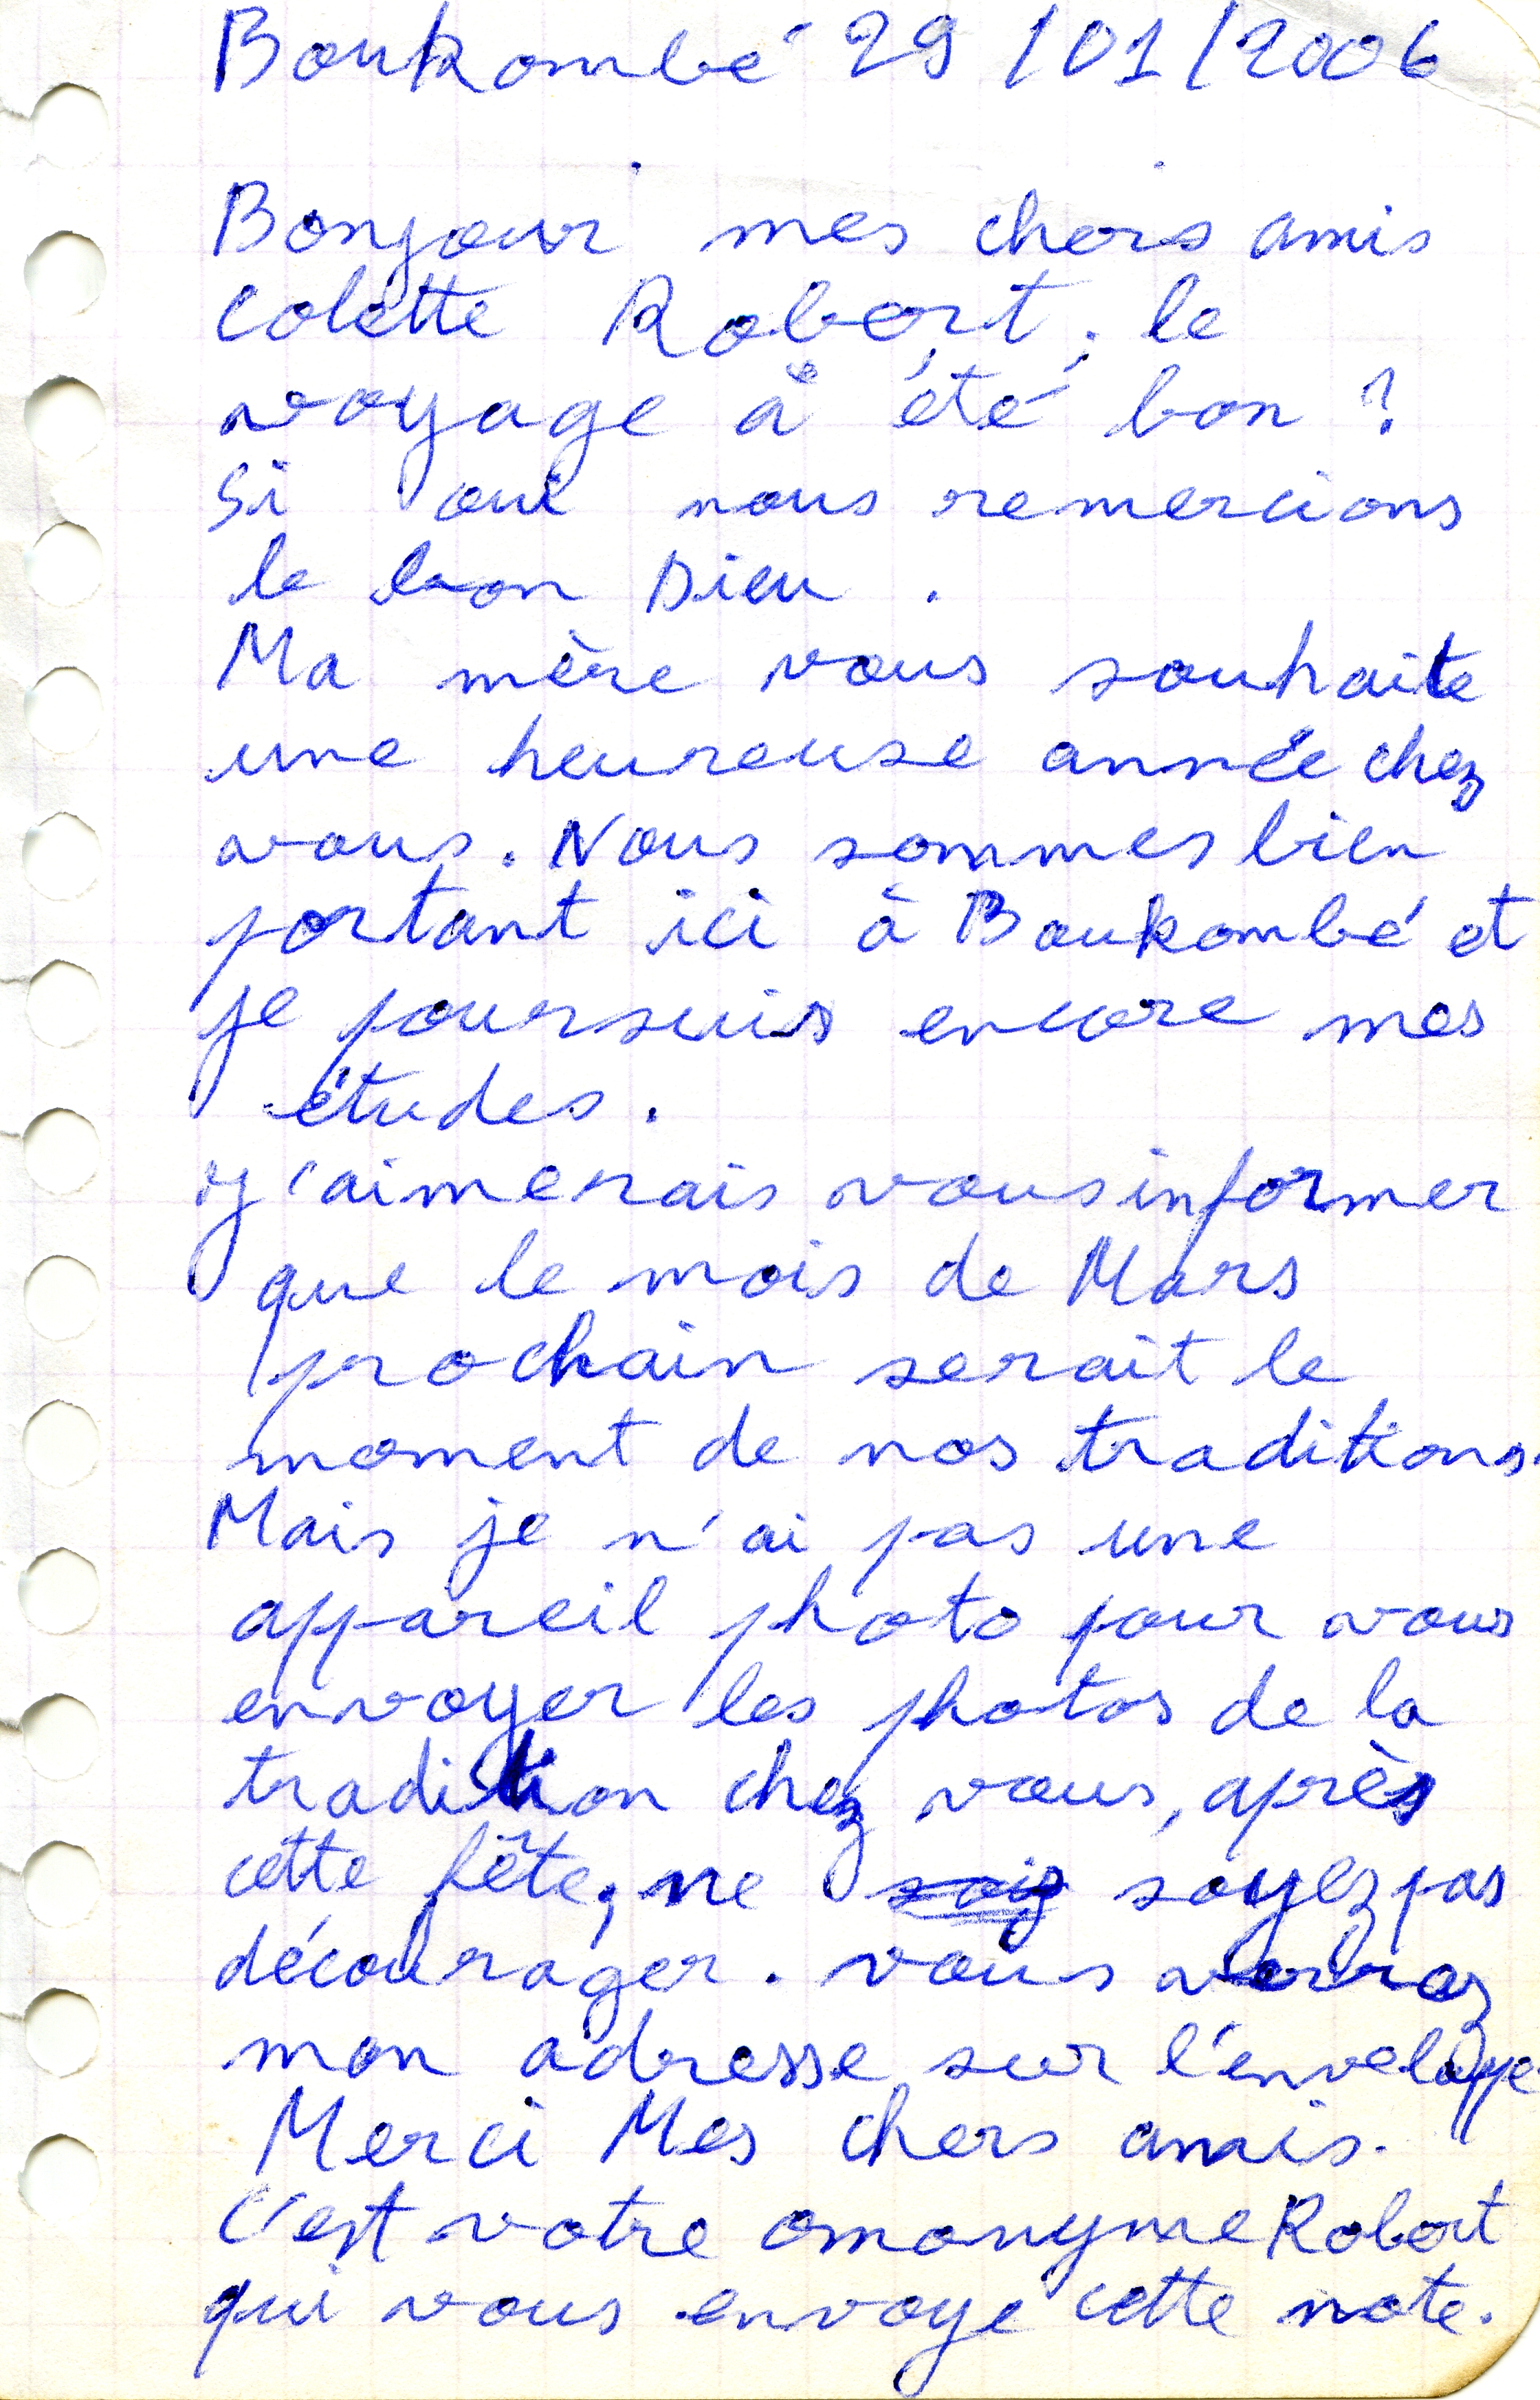 Boukombé 29/01/2006
Bonjour mes chers amis
Colette Robert, le
voyage à été bon ?
Si oui nous remercions
le bon Dieu.
Ma mère vous souhaite
une heureuse année chez
vous. Nous sommes bien
portant ici à Boukombé et
je poursuis encore mes
études.
J'aimerais vous informer
que le mois de Mars
prochain serait le
moment de nos traditions.
Mais je n'ai pas une
appareil photo pour vous
envoyer les photos de la
tradition chez vous, après
cette fête, ne soyez pas
décourager. vous verrez
mon adresse sur l'enveloppe.
Merci Mes chers amis.
C'est votre omonyme Robert
qui vous envoye cette note.